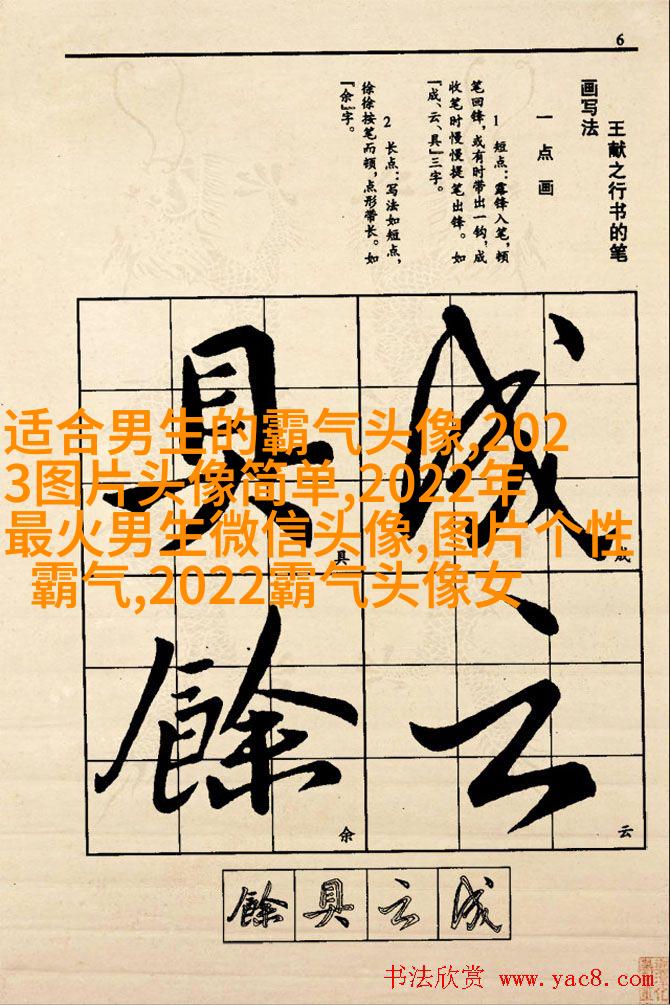 6
王献之行书的笔
画写法
一 点 画
1 短点:露锋入笔,顿
笔回锋,或有时带出一钩,成
收笔时慢慢提笔出锋。如
「成、云、具」三字。
2 长点:写法如短点,
徐徐按笔而顿,点形带长。如
「余」字。
适合男生的霸气头像,202
3图片头像简单,2022年
最火男生微信头像,图片个性
霸气,2022霸气头像女
成
成
云
云
具
具
餘
余
餘具云成
书法欣赏 www.yac8.com